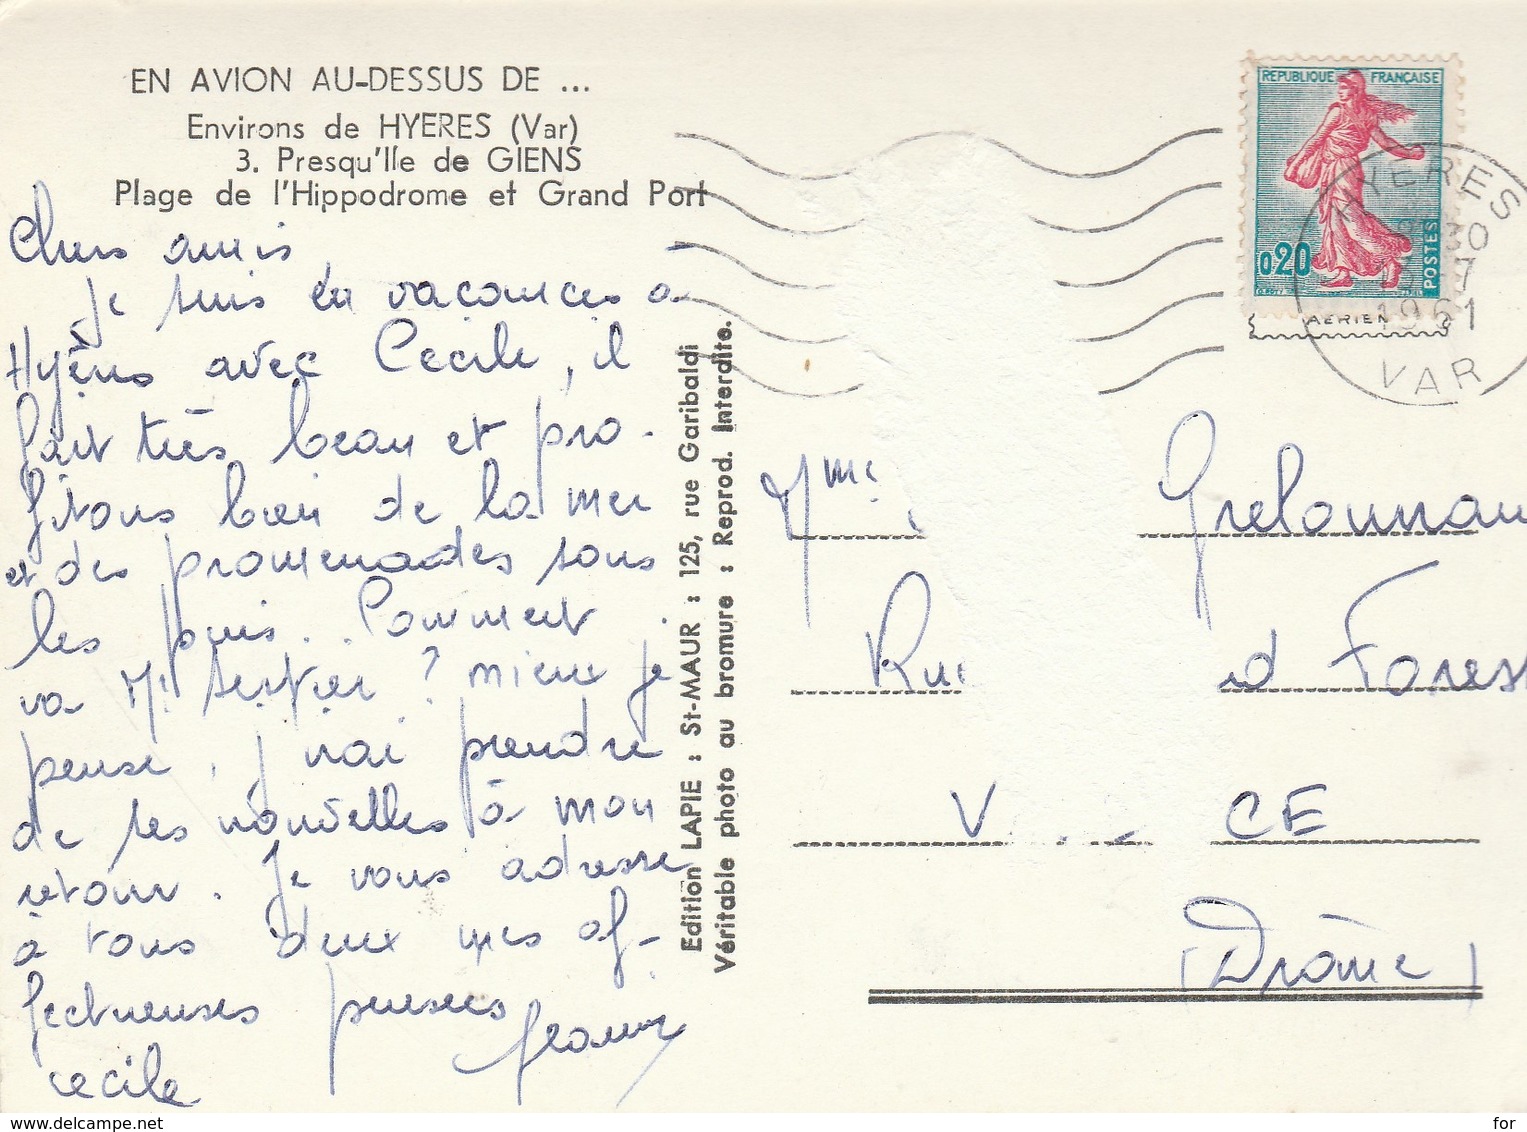 EN AVION AU-DESSUS DE ...
Environs de HYERES (Var)
3. Presqu'Ile de GIENS
Plage de l'Hippodrome et Grand Port
Chers amis
Je suis en vacances à
Hyères avec Cecile, il
fait très beau et pro-
fitons bien de la mer
et des promenades sous
les pins. Comment
va Mr ? mieux je
pense, j'irai prendre
de ses nouvelles à mon
retour. Je vous adresse
à tous deux mes af-
fectueuses pensées
cecile
Edition LAPIE : St-MAUR : 125, rue Garibaldi
Véritable photo au bromure : Reprod. Interdite.
REPUBLIQUE FRANÇAISE
0,20
POSTES
AERIEN
HYERES
30
7
1961
VAR
Mme Grelonnau
Rue d Forest
V CE
(Drôme)
www.delcampe.net
for